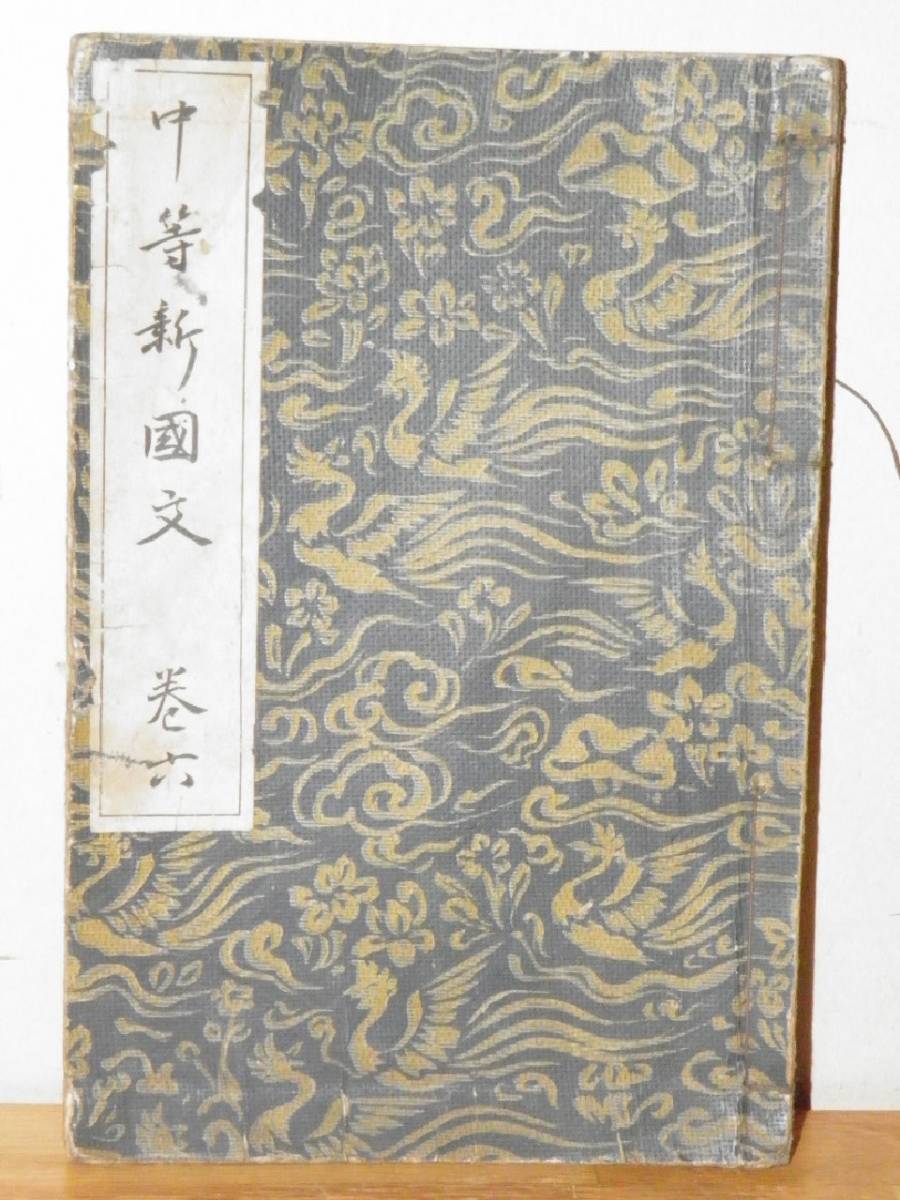 中等新國文 卷六